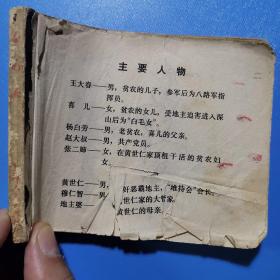 主要人物
王大春——男，贫农的儿子，参军后为八路军指
挥员。
喜儿——女，贫农的女儿，受地主迫害进入深
山后为“白毛女”。
杨白劳——男，老贫农，喜儿的父亲。
赵大叔——男，共产党员。
张二婶——女，在黄世仁家顶租干活的贫农妇
女。
黄世仁——男，奸恶霸地主，“维持会”会长。
穆仁智——男，世仁家的大管家。
地主婆——黄世仁的母亲。